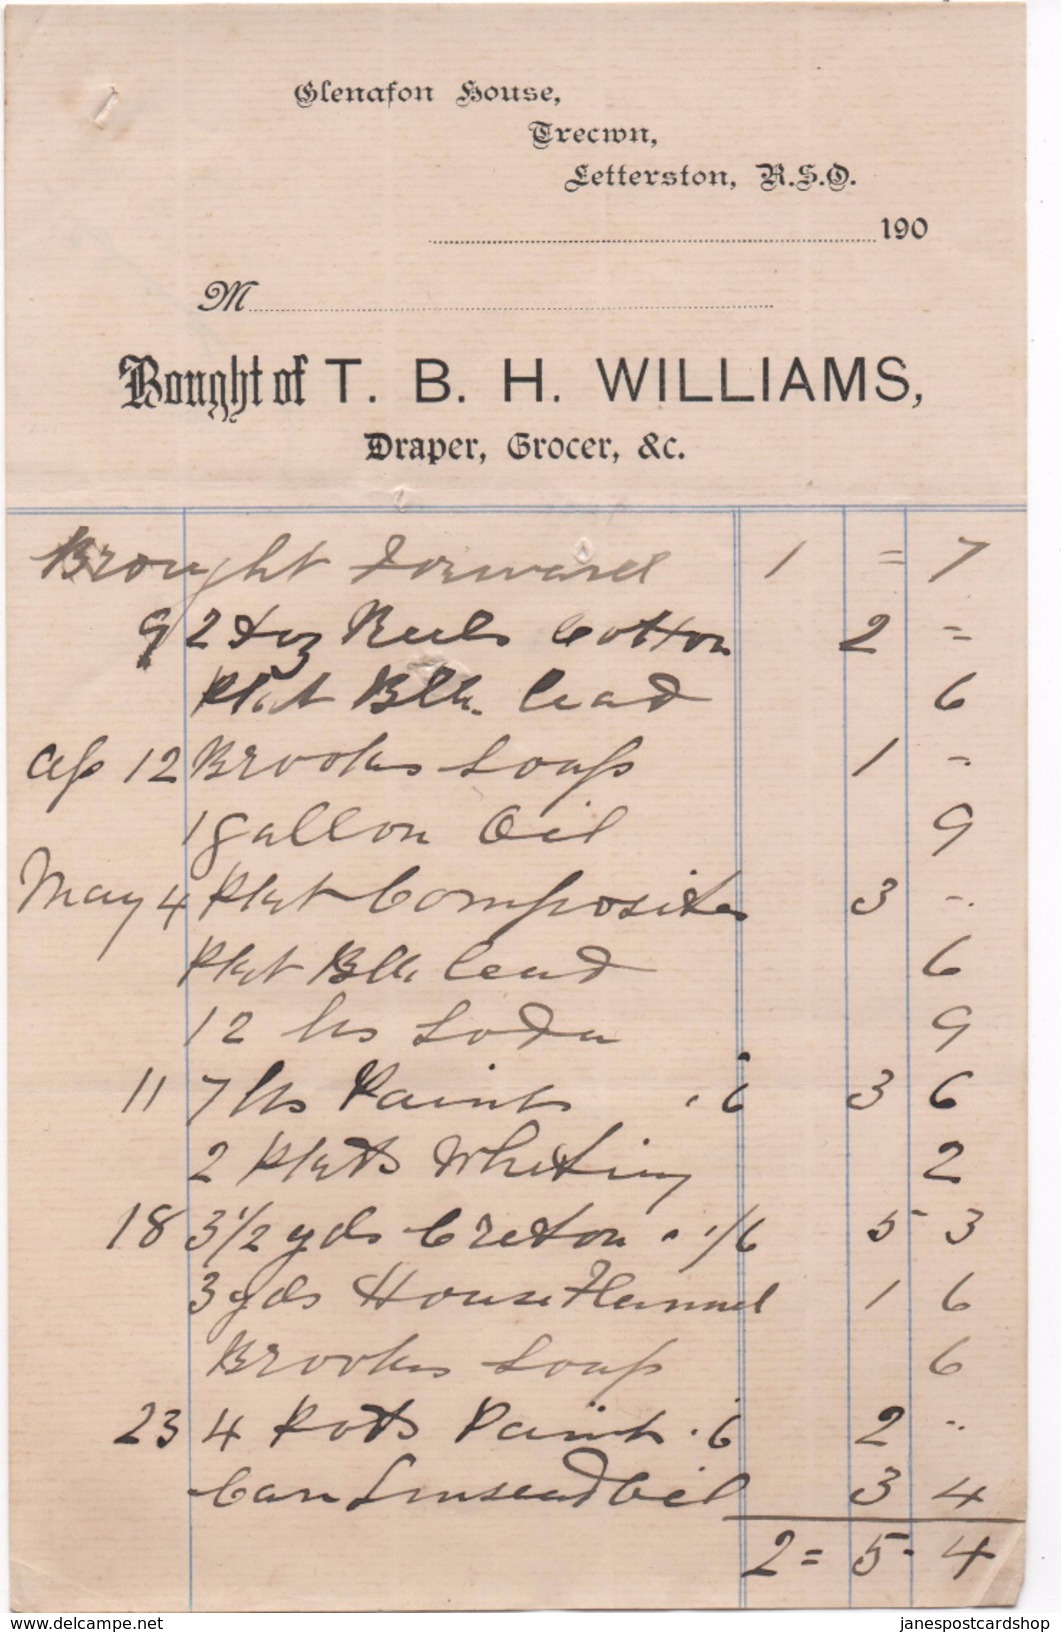 Glenafon House,
Trecwn,
Letterston, R.S.O.
190
M
Bought of T. B. H. WILLIAMS,
Draper, Grocer, &c.
Brought Forward 1 = 7
9 2 doz Reels Cotton 2 =
Pkt Blk. lead 6
Ap 12 Brooks Soap 1 -
1 gallon Oil 9
May 4 Pkt Composites 3 -
Pkt Blk lead 6
12 lbs Soda 9
11 7 lbs Paint .6 3 6
2 Pkts Whiting 2
18 3 1/2 yds Creton 1/6 5 3
3 yds House Flannel 1 6
Brooks Soap 6
23 4 Pots Paint .6 2 -
Can Linseed Oil 3 4
2 = 5 - 4
delcampe.net
janespostcardshop